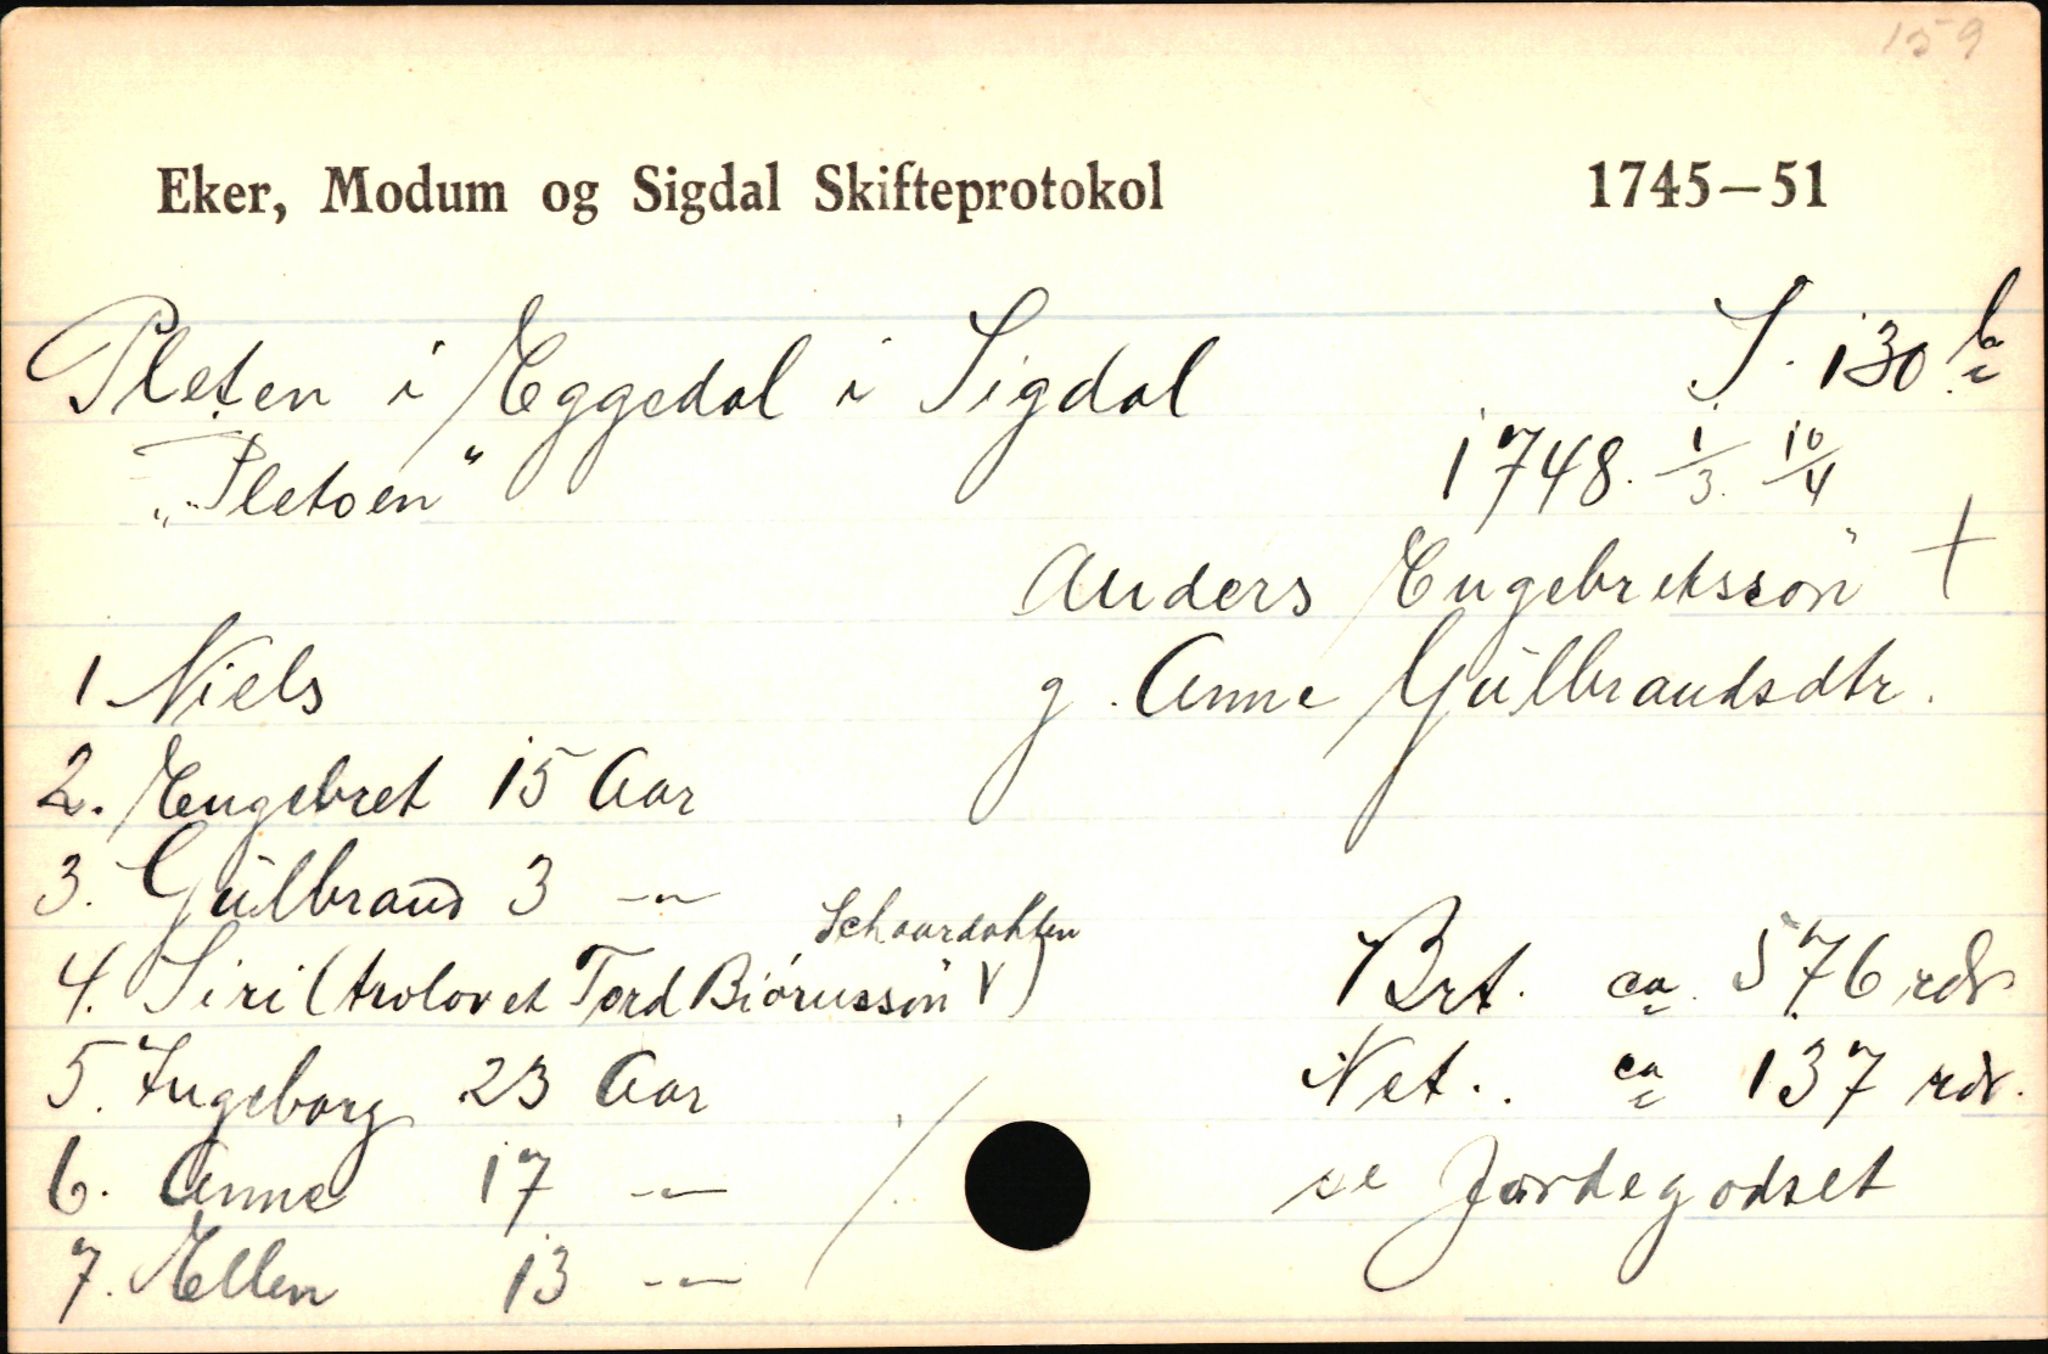 159
Eker, Modum og Sigdal Skifteprotokol 1745–51
Pleten i Eggedal i Sigdal S. 130 b
„Pletoen“ 1748. 1/3. 10/4
Anders Engebretssön +
g. Anne Gŭlbrandsdtr.
1 Niels
2. Engebret 15 Aar
3. Gŭlbrand 3 —„—
Schaardahlen
4. Siri (trolovet Tord Biörnssön V)
5. Ingeborg 23 Aar
6. Anne 17 —„—
7. Ellen 13 —„—
Brt. ca. 576 rdr
Net.. ca 137 rdr.
se Jordegodset